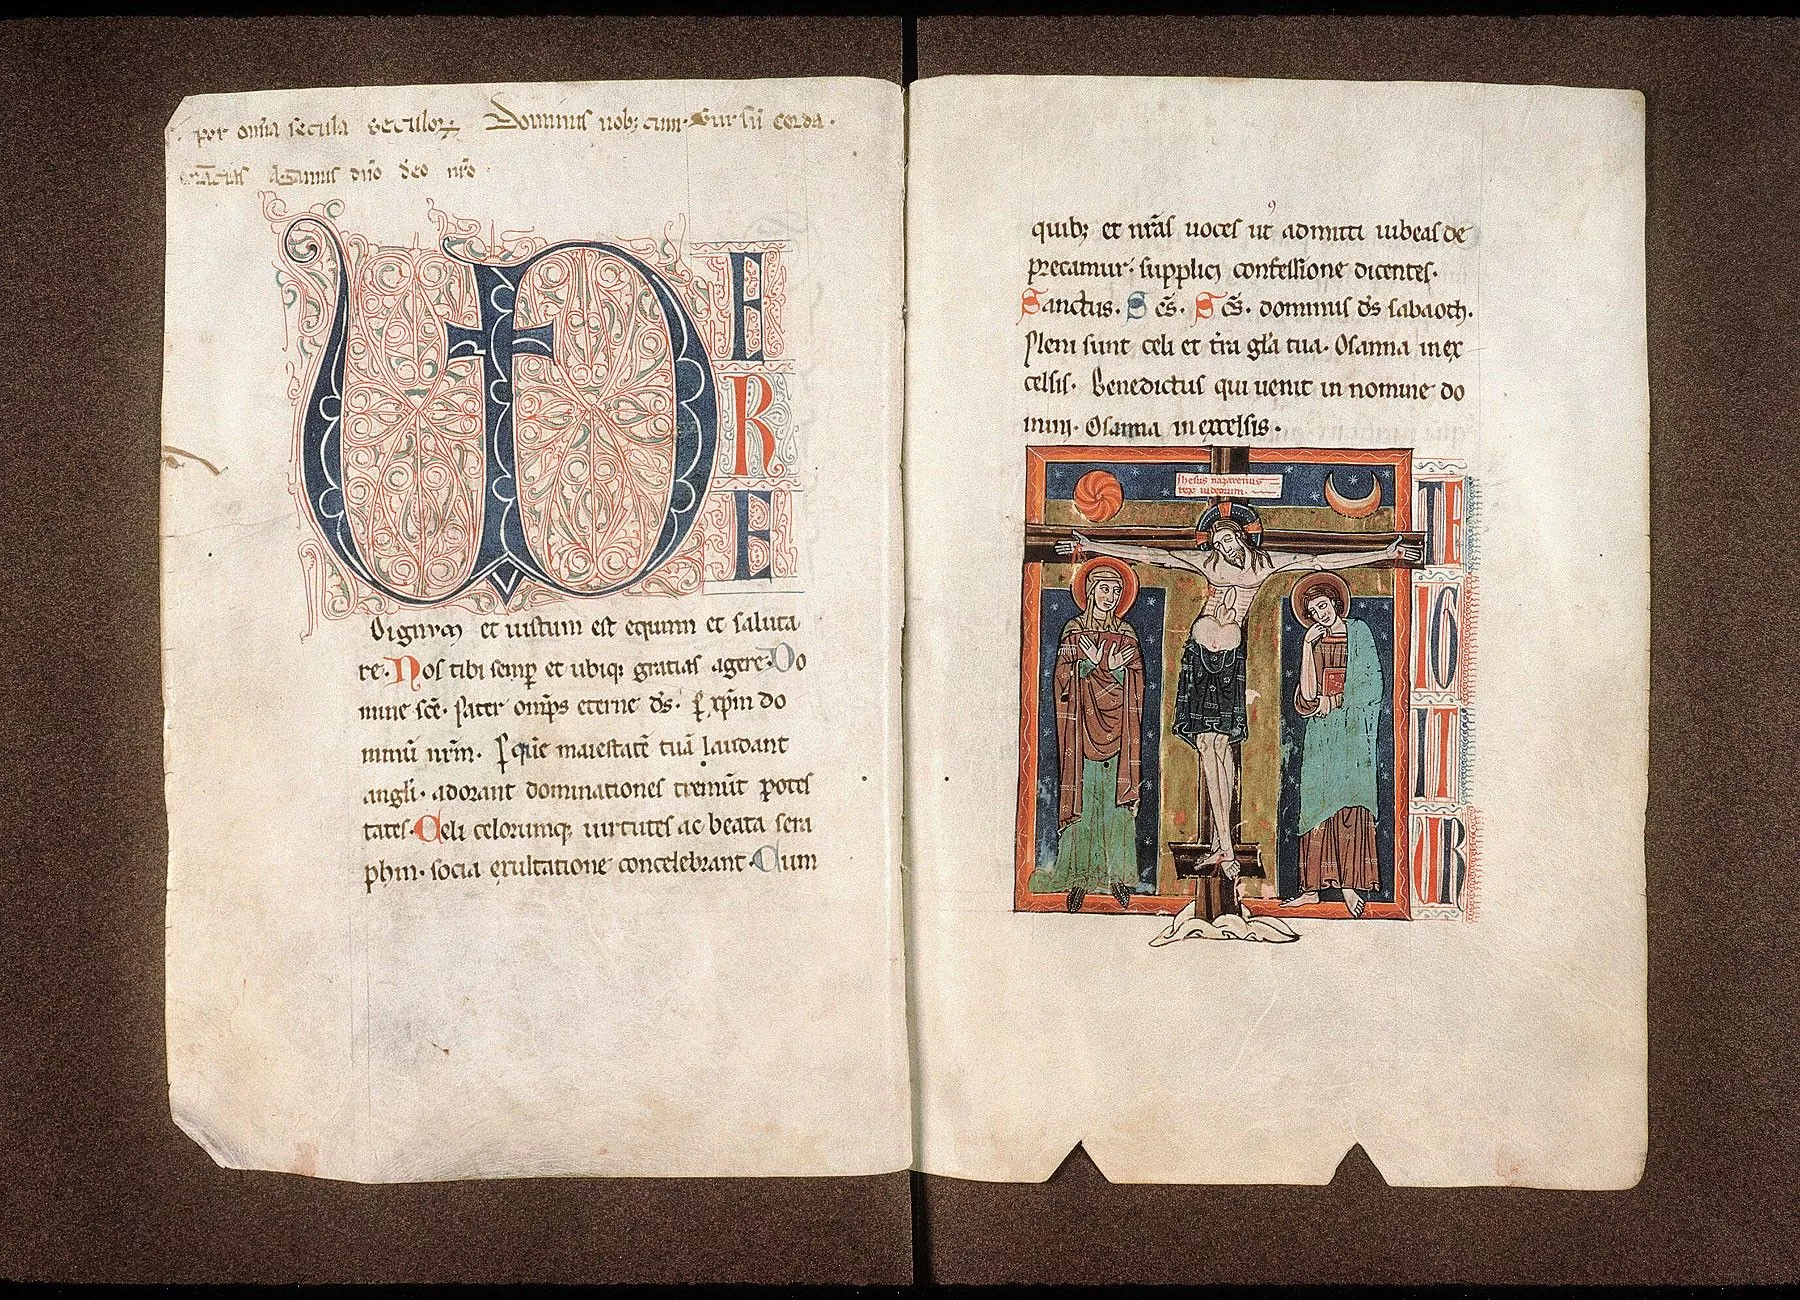 per om̄ia secula seculoꝝ Dominus uobꝫcum. Sursū corda.
Gr̄acias Agamus dn̄o deo nr̄o.
VERE
Dignum et iustum est equum et saluta
re. Nos tibi semꝑ et ubiqꝫ gratias agere. Do
mine sc̄e. pater om̄ps eterne ds̄. ꝑ xp̄m do
minū nr̄m. Ꝑ quē maiestatē tuā laudant
angli. adorant dominationes tremūt potes
tates. Celi celorumqꝫ uirtutes ac beata sera
phin. socia exultatione concelebrant. Cum
quibꝫ et nr̄as uoces ut admitti iubeas de
precamur. supplici confessione dicentes.
Sanctus. Sc̄s. Sc̄s. dominus ds̄ sabaoth.
Pleni sunt celi et t̄ra gl̄a tua. Osanna in ex
celsis. Benedictus qui uenit in nomine do
mini. Osanna in excelsis.
Ihesus nazarenus
rex iudeorum.
TE
IGI
T
UR